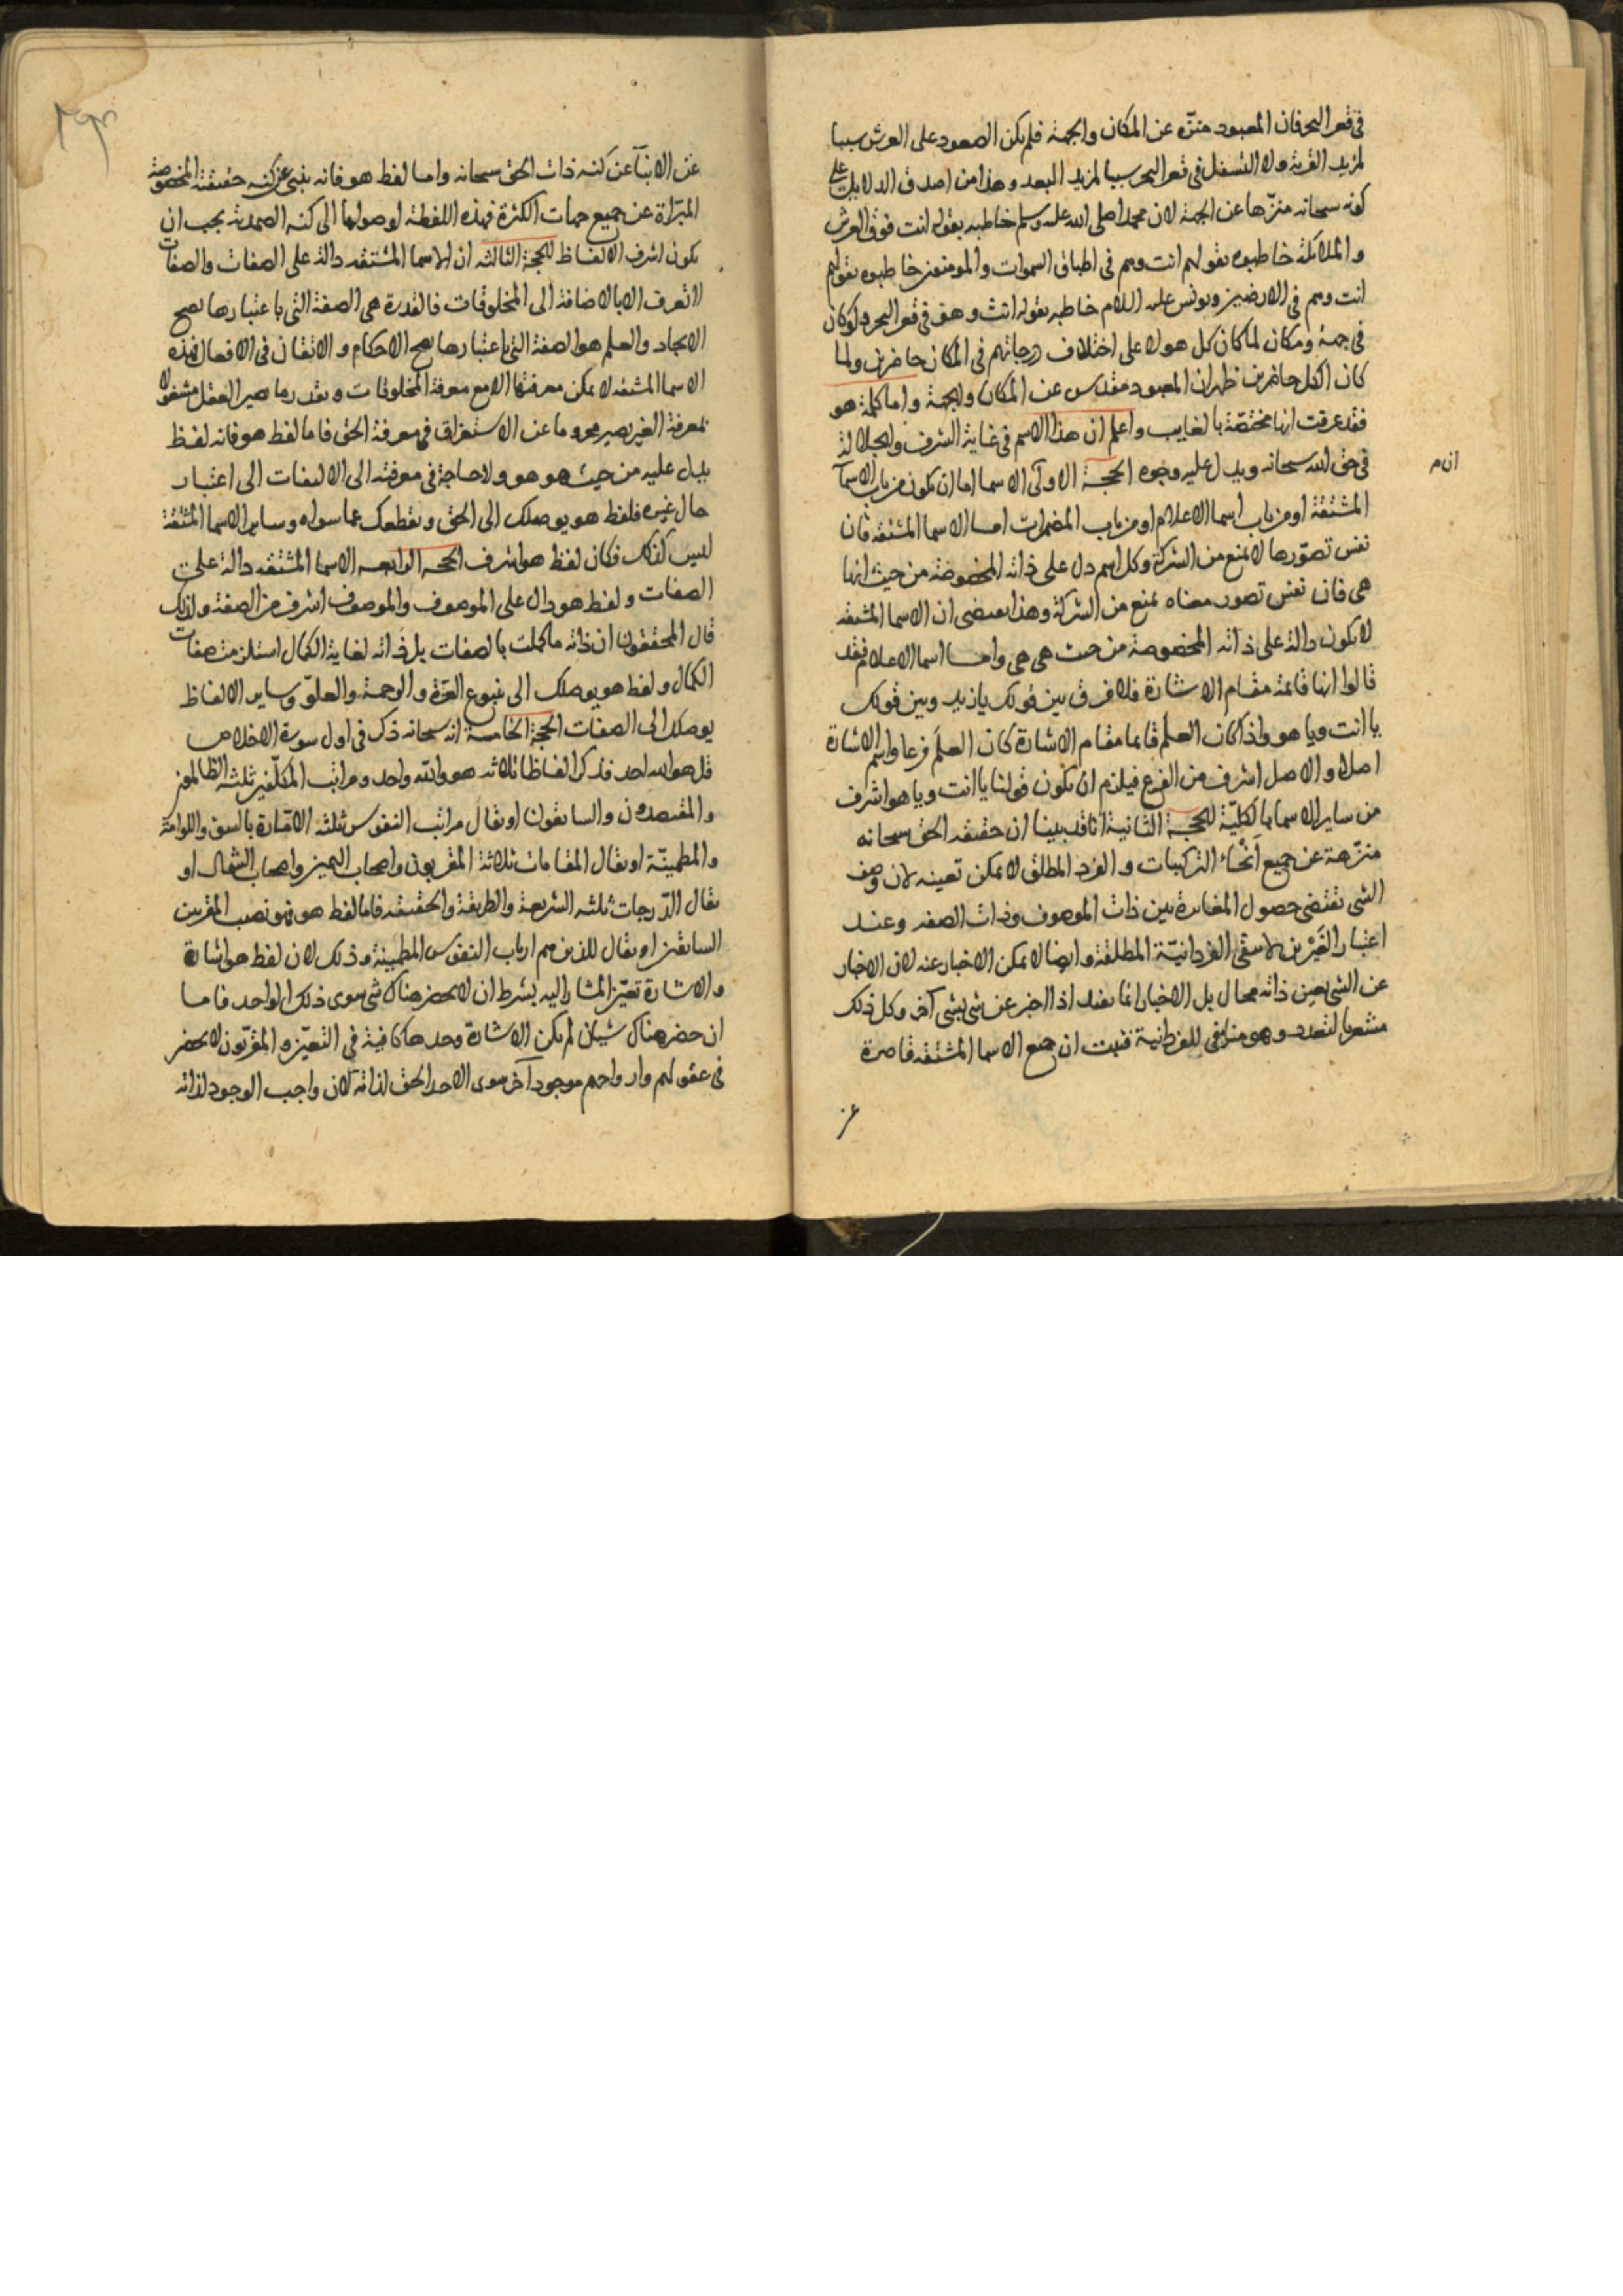 في قعر البحر فان المعبود منزّه عن المكان والجهة فلم يكن الصعود على العرش سببا
لمزيد القربة ولا التسفل في قعر البحر سببا لمزيد البعد وهذا من اصدق الدلايل على
كونه سبحانه منزّها عن الجهة لان محمدا صلى الله عليه وسلم خاطبه بقوله انت فوق العرش
والملايكة خاطبوه بقولهم انت وهم في اطباق السموات والمومنين خاطبوه بقولهم
انت وهم في الارضين ويونس عليه السلام خاطبه بقوله انت وهو في قعر البحر ولو كان
في جهة ومكان لما كان كل هولا على اختلاف درجاتهم في المكان حاضرين ولما
كان الكل حاضرين ظهر ان المعبود مقدس عن المكان والجهة واما كلمة هو
فقد عرفت انها مختصّة بالغايب واعلم ان هذا الاسم في غاية الشرف والجلالة
في حق الله سبحانه ويدل عليه وجوه الحجة الاولى الاسما اما ان تكون من باب الاسمآ
المشتقة او من باب اسما الاعلام او من باب المضمرات اما الاسما المشتقه فان
نفس تصوّرها لا يمنع من الشركة وكل اسم دل على ذاته المخصوصة من حيث انها
هي فان نفس تصور معناه يمنع من الشركة وهذا يقتضى ان الاسما المشتقه
لا يكون دالة على ذاته المخصوصة من حيث هي هي واما اسما الاعلام فقد
قالوا انها قايمة مقام الاشارة فلا فرق بين قولك يا زيد وبين قولك
يا انت ويا هو واذا كان العلم قايما مقام الاشارة كان العلَم فرعا واسم الاشارة
اصلا والاصل اشرف من الفرع فيلزم ان تكون قولنا يا انت ويا هو اشرف
من ساير الاسما بالكليّة الحجة الثانية انا قد بينا ان حقيقه الحق سبحانه
منزّهة عن جميع اَنْحَاء التركيبات والفرد المطلق لا يمكن تعينه لان وصف
الشى تقتضى حصول المغايرة بين ذات الموصوف وذات الصفه وعند
اعتبار الغَيْرين لا يبقى الفردانيّة المطلقة وايضا لا يمكن الاخبار عنه لان الاخبار
عن الشى بعين ذاته محال بل الاخبار انما يفيد اذا اخبر عن شى بشى آخر وكل ذلك
مشعر بالتعدد وهو منافى للفردانية فثبت ان جميع الاسما المشتقه قاصرة
عن
عن الانبآ عن كنه ذات الحق سبحانه واما لفظ هو فانه ينبى عن كنه حقيقة المخصوصة
المبرّاة عن جميع جهات الكثرة فهذه اللفظة لوصولها الى كنه الصمدية يجب ان
يكون اشرف الالفاظ الحجة الثالثه ان الاسما المشتقه دالة على الصفات والصفات
لا تعرف الا بالاضافة الى المخلوقات فالقدرة هي الصفة التي باعتبارها يصح
الايجاد والعلم هو الصفة التي باعتبارها يصح الاحكام والاتقان في الافعال فهذه
الاسما المشتقه لا يمكن معرفتها الا مع معرفة المخلوقات وبقدر ما يصير العقل مشغولا
بمعرفة الغير يصير محروما عن الاستغراق في معرفة الحق فاما لفظ هو فانه لفظ
يدل عليه من حيث هو هو ولا حاجة في معرفته الى الالتفات الى اعتبار
حال غيره فلفظ هو يوصلك الى الحق ويقطعك عما سواه وساير الاسما المشتقة
ليس كذلك فكان لفظ هو اشرف الحجه الرابعه الاسما المشتقه دالة على
الصفات ولفظ هو دال على الموصوف والموصوف اشرف من الصفة ولذلك
قال المحققون ان ذاته ما كملت بالصفات بل ذاته لغاية الكمال استلزمت صفات
الكمال ولفظ هو يوصلك الى ينبوع العزّة والرحمة والعلوّ وساير الالفاظ
يوصلك الى الصفات الحجة الخامسة انه سبحانه ذكر في اول سورة الاخلاص
قل هو الله احد فذكر الفاظا ثلاثه هو والله واحد ومراتب المكلّفين ثلثه الظالمون
والمقتصدون والسابقون او يقال مراتب النفوس ثلثه الامّارة بالسوء واللوامة
والمطمينّة او يقال المقامات ثلاثة المقربون واصحاب اليمين واصحاب الشمال او
يقال الدّرجات ثلثه الشريعة والطريقة والحقيقه فاما لفظ هو فهو نصيب المقربين
السابقين او يقال للذين هم ارباب النفوس المطمينة وذلك لان لفظ هو اشارة
والاشارة تعيّن المشار اليه بشرط ان لا يحضر هناك شى سوى ذلك الواحد فاما
ان حضر هناك شيان لم يكن الاشارة وحدها كافية في التعيّن والمقرّبون لا يحضر
في عقولهم وارواحهم موجود آخر سوى الاحد الحق لذاته لان واجب الوجود لذاته